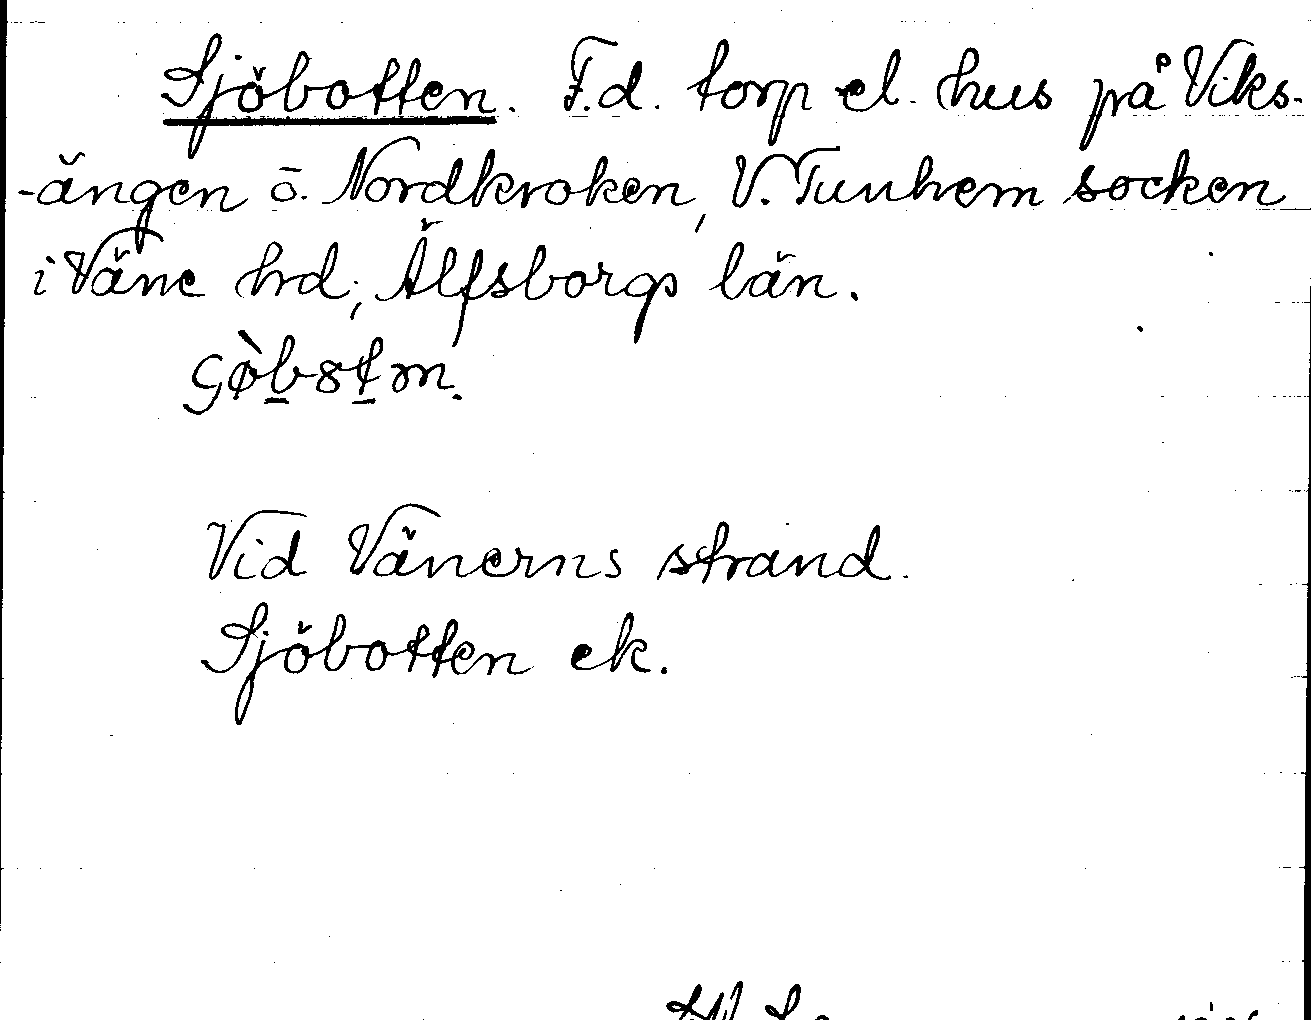 Sjöbotten. F.d. torp el. hus på Viks-
-ängen ö. Nordkroken, V. Tunhem socken
i Väne hrd, Älfsborgs län.
Vid Vänerns strand.
Sjöbotten ek.